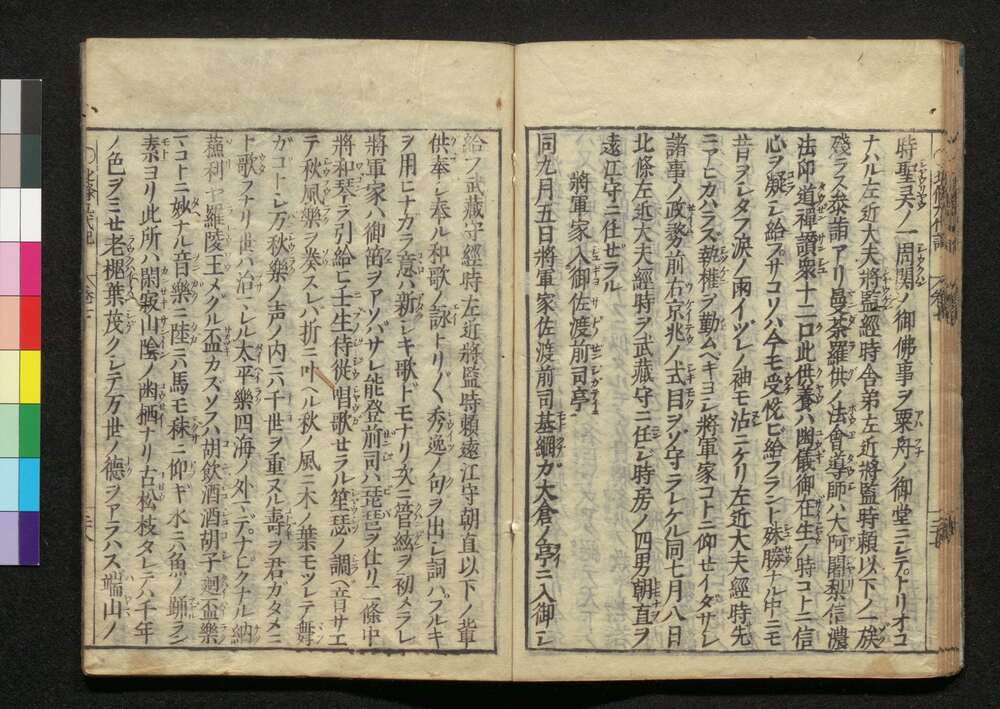 時聖㚑ノ一周関ノ御佛事ヲ粟舟ノ御堂ニシテトリオコ
ナハル左近大夫將監經時舎弟左近將監時頼以下ノ一族
殘ラス叅詣アリ曼荼羅供ノ法會導師ハ大阿闍梨信濃
法印道禅讃衆十二口此供養ハ幽儀御在生ノ時コトニ信
心ヲ凝シ給フサコソハ今モ受悦ヒ給フラント殊勝ナル中ニモ
昔ヲシタフ涙ノ雨イツレノ袖モ沾ニケリ左近大夫經時先
ニアヒカハラズ執權ヲ勤ムベキヨシ將軍家コトニ仰せイダサレ
諸事ノ政務前右京兆ノ式目ヲソ守ラレケル同七月八日
北條左近大夫經時ヲ武藏守ニ任シ時房ノ四男朝直ヲ
遠江守ニ任せラル
將軍家入御佐渡前司亭
同九月五日將軍家佐渡前司基綱カ大倉ノ亭ニ入御シ
給フ武藏守經時左近將監時頼遠江守朝直以下ノ輩
供奉シ奉ル和歌ノ詠トリ〱秀逸ノ句ヲ出シ詞ハフルキ
ヲ用ヒナガラ意ハ新シキ歌ドモナリ次ニ管絃ヲ初メラレ
將軍家ハ御笛ヲアソバサレ能登前司ハ琵琶ヲ仕リ二條中
將和琴ヲ引給ヒ壬生侍從唱歌せラル笙瑟ノ調ヘ音サエ
テ秋風樂ヲ奏スレバ折ニ叶ヘル秋ノ風ニ木ノ葉モツレテ舞
ガコトシ万秋樂ノ声ノ内ニ六千世ヲ重ヌル壽ヲ君カタメニ
ト歌フナリ世ハ治レル太平樂四海ノ外ニデナヒクナル納
蘓利ヤ羅陵王メグル盃カズソフハ胡飲酒酒胡子廻盃樂
マコトニ妙ナル音樂ニ陸ニハ馬モ秣ニ仰ギ水ニハ魚ノ踊ラン
素ヨリ此所ハ閑寂山陰ノ幽栖ナリ古松枝タレテハ千年
ノ色ヲミせ老椀葉茂クシテ万世ノ德ヲアラハス端山ノ